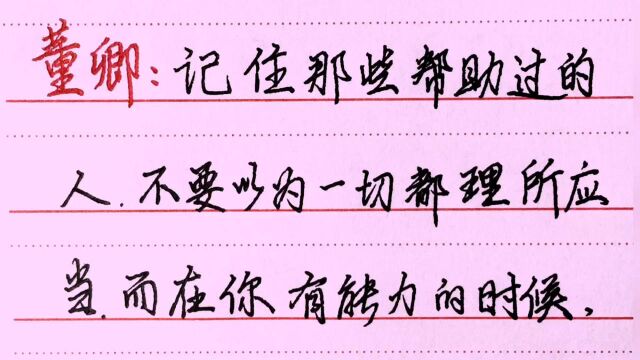 董卿:记住那些帮助过的
人.不要以为一切都理所应
当.而在你有能力的时候,